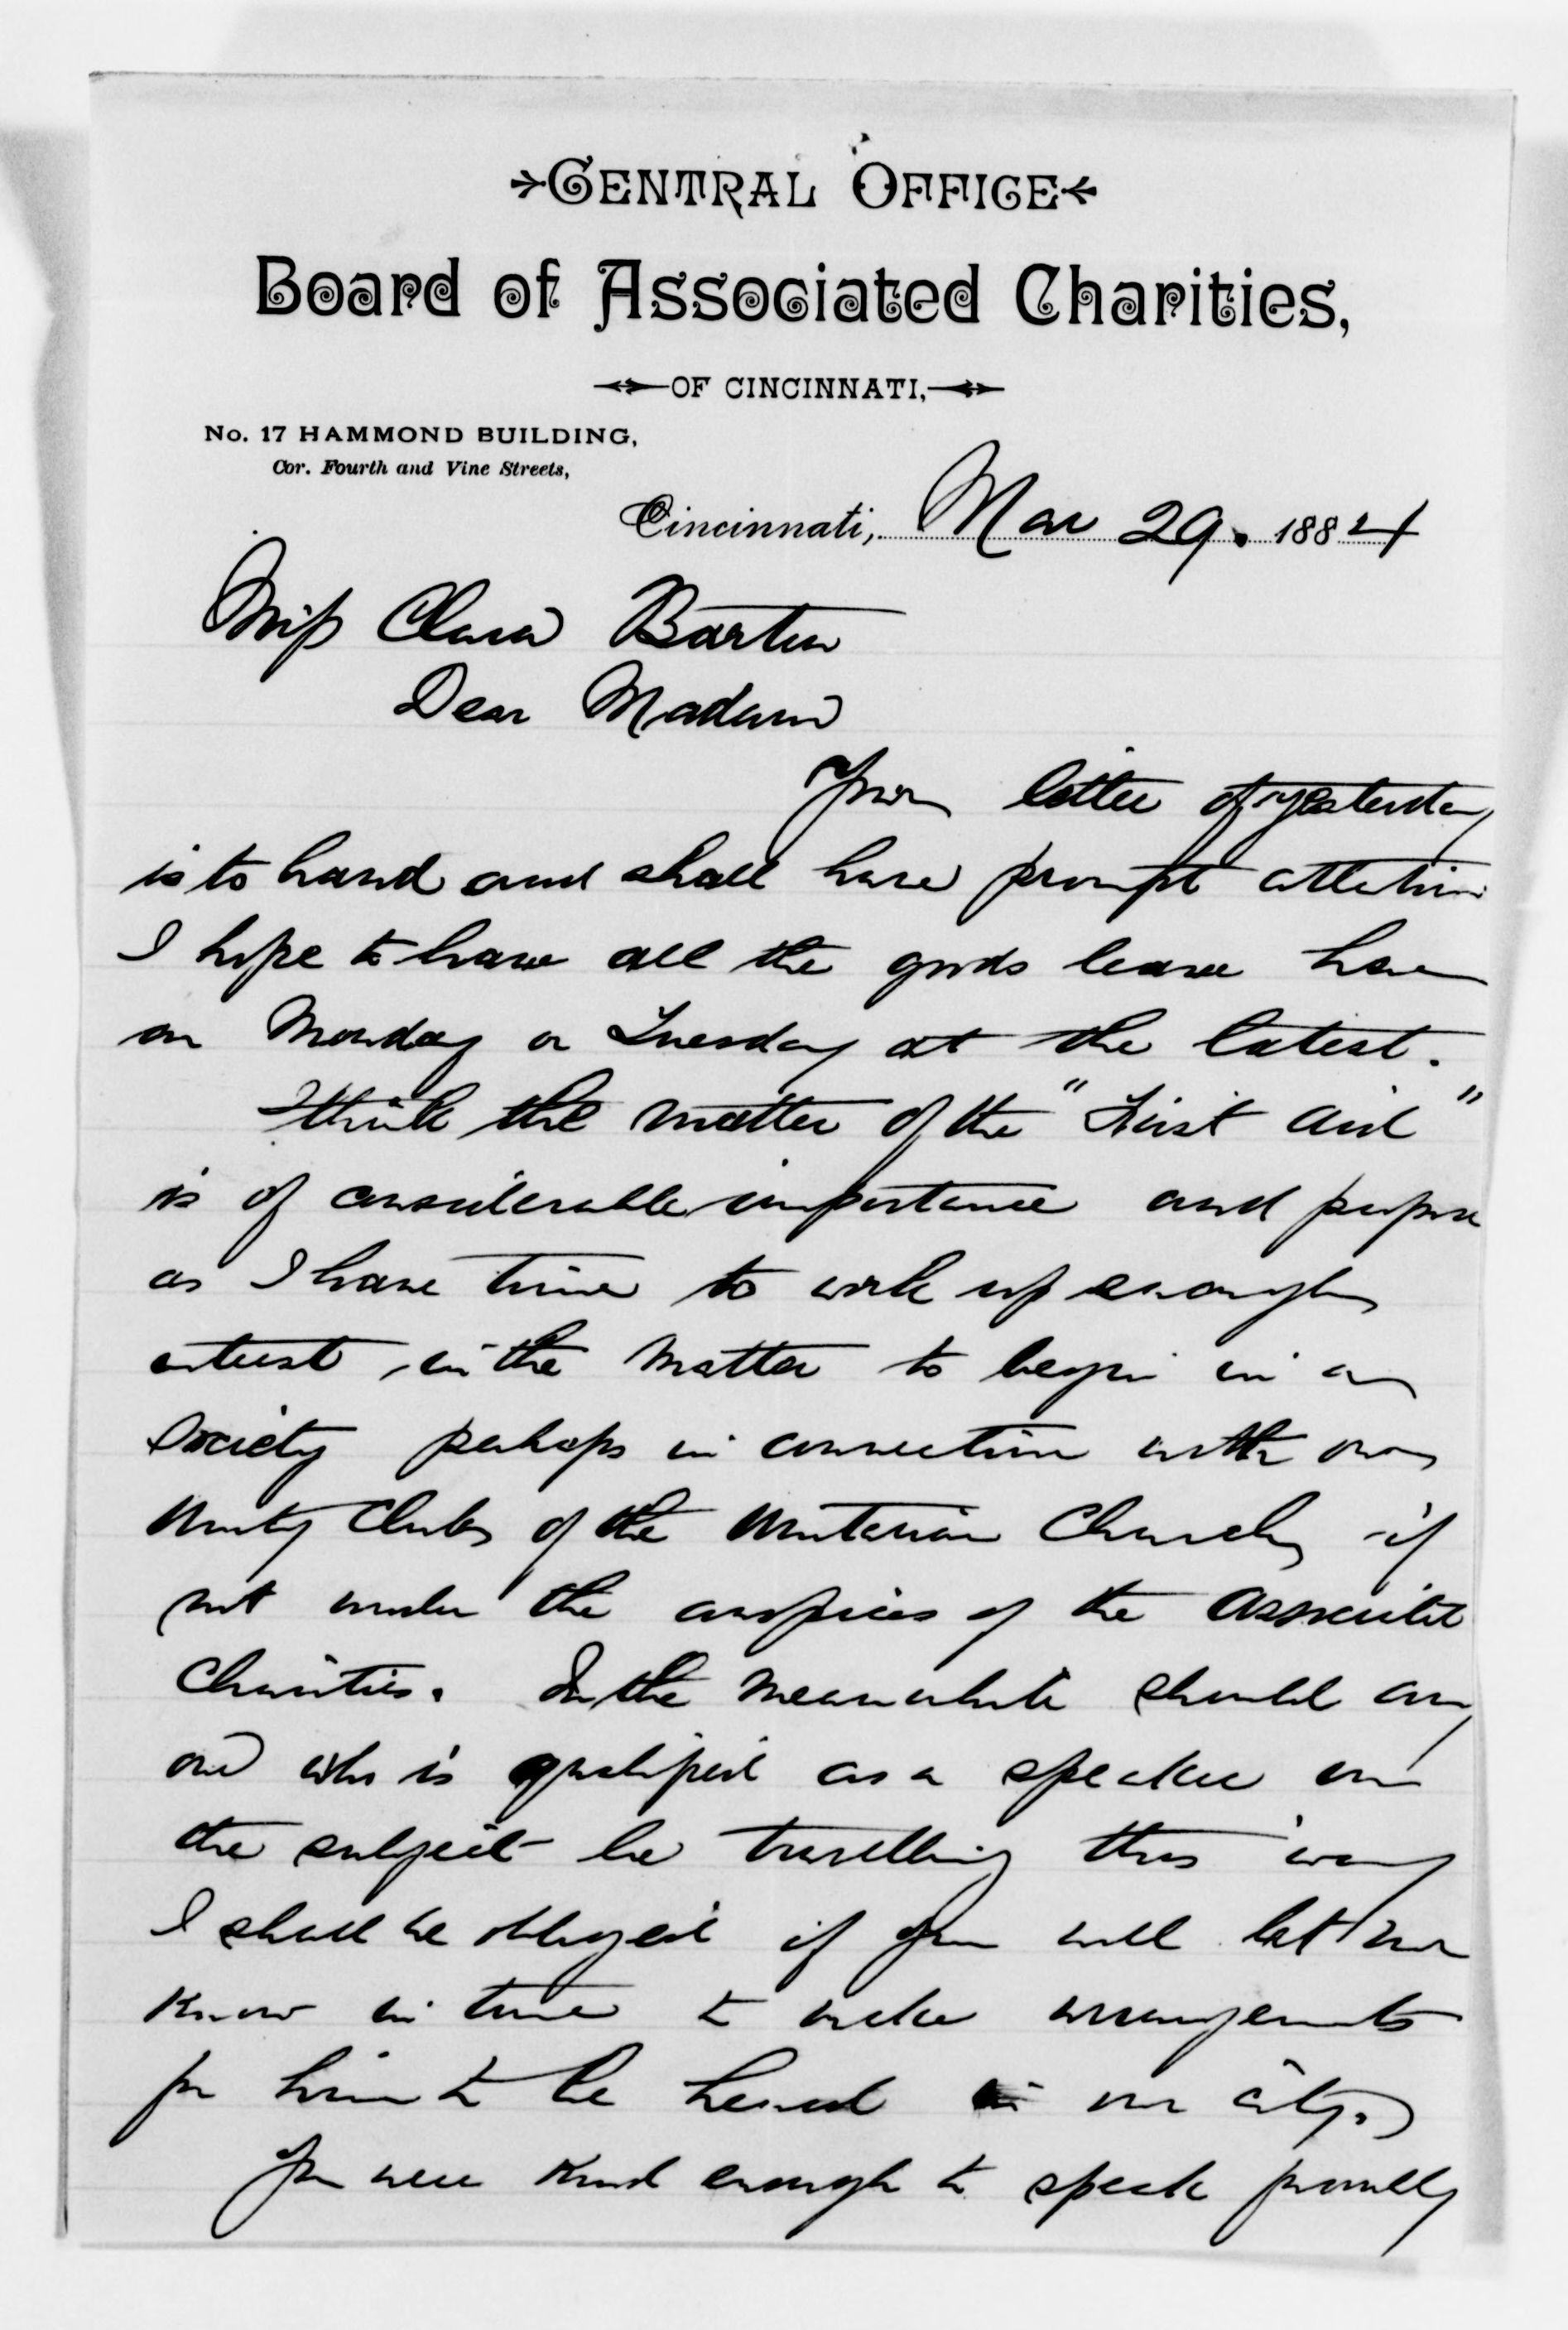 CENTRAL OFFICE
Board of Associated Charities,
OF CINCINNATI,
No. 17 HAMMOND BUILDING,
Cor. Fourth and Vine Streets,
Cincinnati, Mar 29. 1884
Miss Clara Barton
Dear Madam
Your letter of yesterday
is to hand and shall have prompt attention
I hope to have all the goods leave here
on Monday or Tuesday at the latest.
I think the matter of the "First Aid"
is of considerable importance and purpose
as I have time to work up enough
interest in the matter to begin in a
Society perhaps in connection with our
Unity Clubs of the Unitarian Church, if
not under the auspices of the Associated
Charities. In the meanwhile should any
one who is qualified as a speaker on
the subject be travelling this way
I shall be obliged if you will let me
know in time to make arrangements
for him to be heard in our city.
You were kind enough to speak